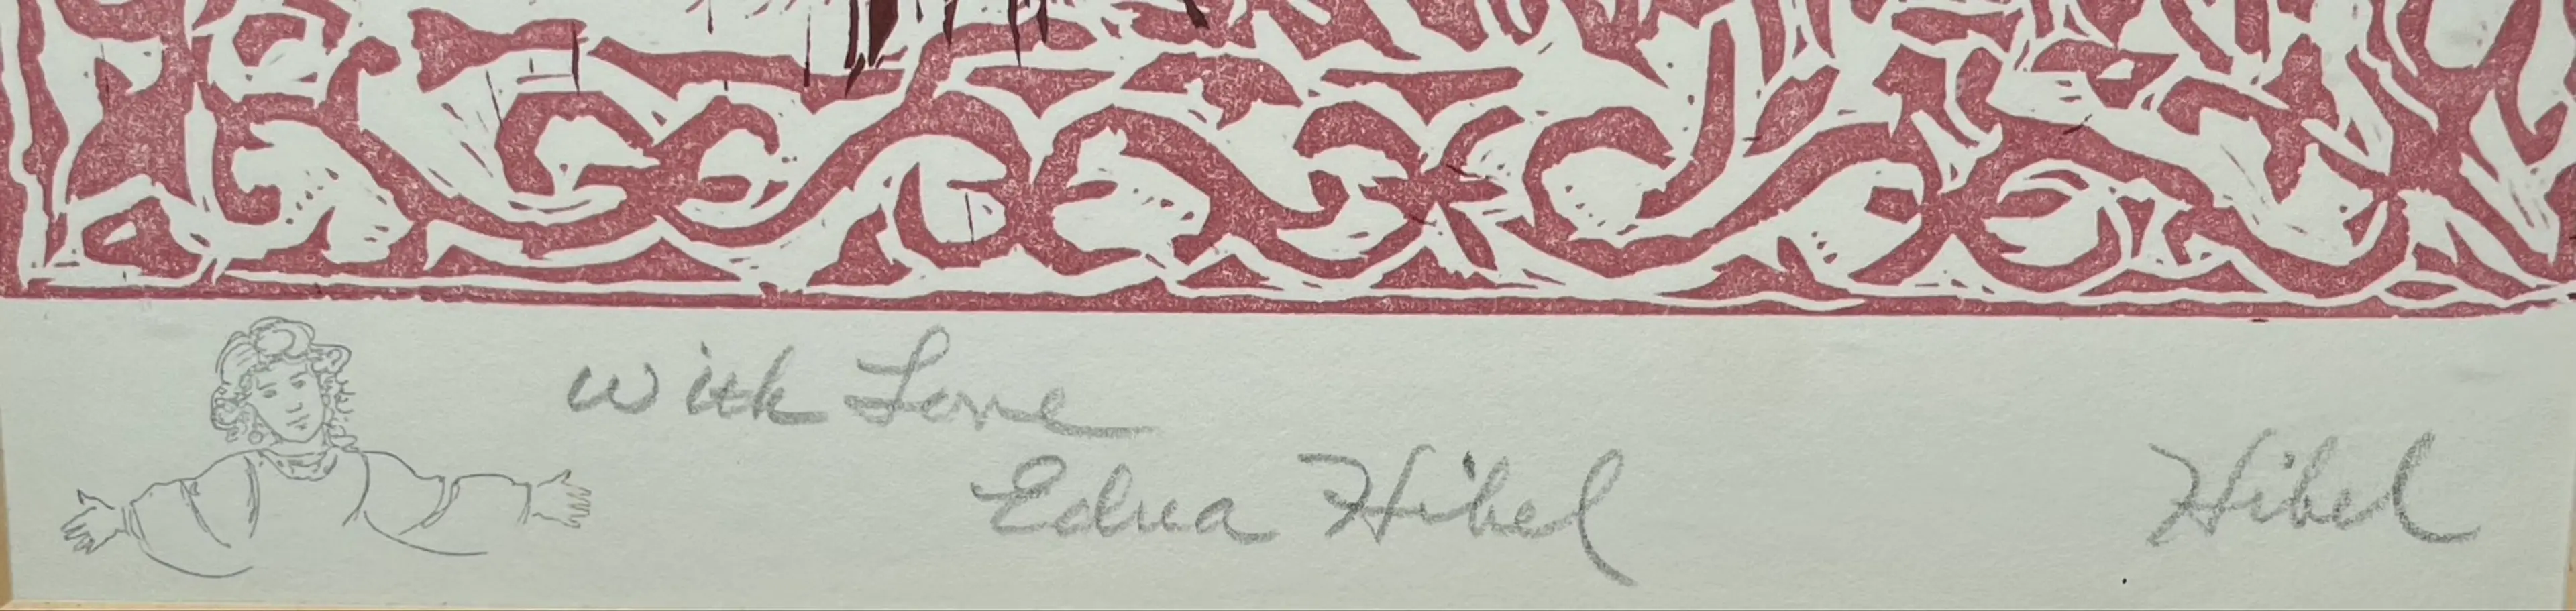 With Love
Edna Hibel
Hibel